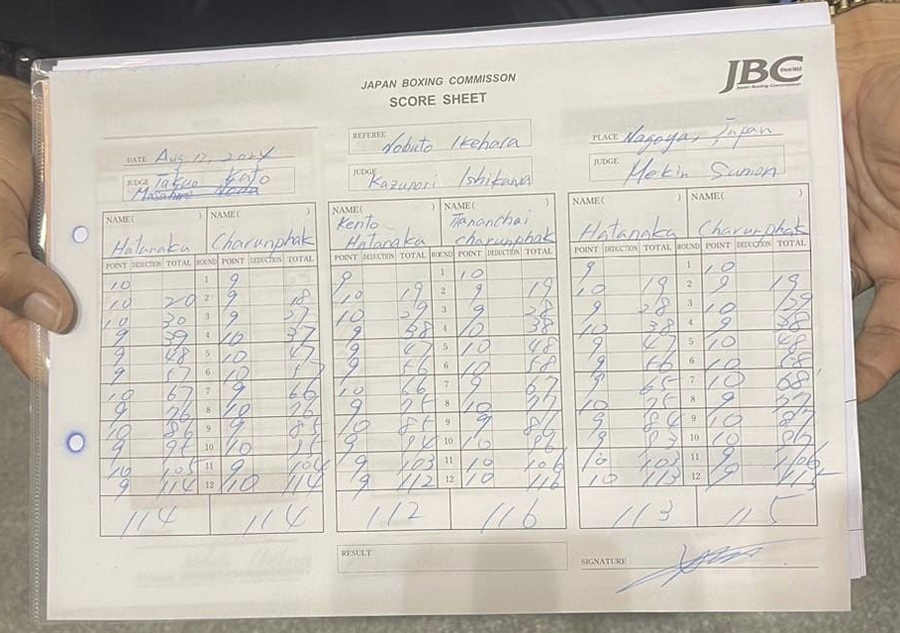 JAPAN BOXING COMMISSON
SCORE SHEET
JBC
Since1952
Japan Boxing Commission
DATE Aug 12, 2024
REFEREE
Nobuto Ikehara
PLACE Nagoya, Japan
JUDGE Takuo Kato
Masahiro Noda
JUDGE
Kazunori Ishikawa
JUDGE
Mekin Sumon
NAME( ) NAME( ) NAME( ) NAME( ) NAME( ) NAME( )
Hatanaka Charunphak Kento Hatanaka Tananchai charunphak Hatanaka Charunphak
POINT DEDUCTION TOTAL ROUND POINT DEDUCTION TOTAL POINT DEDUCTION TOTAL ROUND POINT DEDUCTION TOTAL POINT DEDUCTION TOTAL ROUND POINT DEDUCTION TOTAL
10 1 9 9 1 10 9 1 10
10 20 2 9 18 10 19 2 9 19 10 19 2 9 19
10 30 3 9 27 10 29 3 9 28 9 28 3 10 29
9 39 4 10 37 9 38 4 10 38 10 38 4 9 38
9 48 5 10 47 9 47 5 10 48 9 47 5 10 48
9 57 6 10 9 56 6 10 58 9 56 6 10 58
10 67 7 9 66 10 66 7 9 67 9 65 7 10 68
9 76 8 10 76 9 75 8 10 77 10 75 8 9 77
10 86 9 9 85 10 85 9 9 86 9 84 9 10 87
9 95 10 10 95 9 94 10 10 96 9 93 10 10 97
10 105 11 9 104 9 103 11 10 106 10 103 11 9 106
9 114 12 10 114 9 112 12 10 116 10 113 12 9 115
114 114 112 116 113 115
RESULT
SIGNATURE